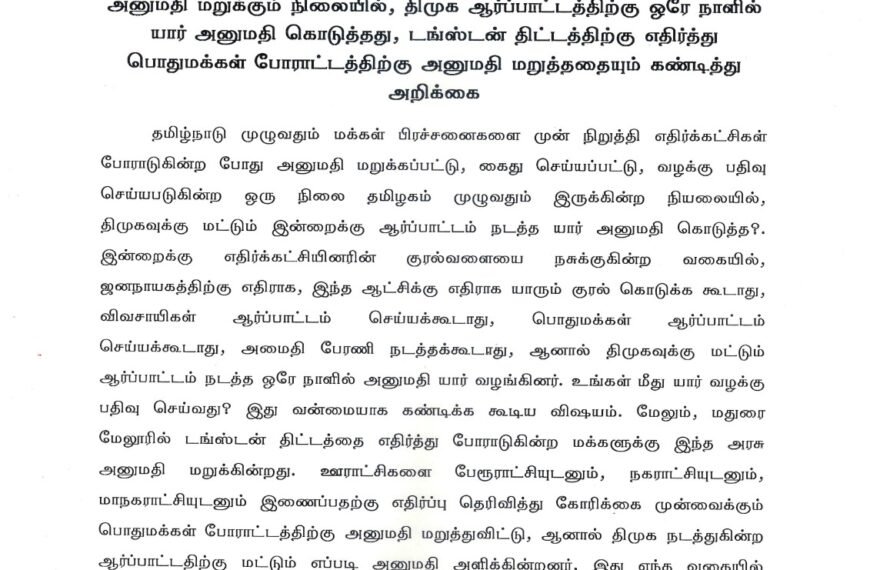 அனுமதி மறுக்கும் நிலையில், திமுக ஆர்ப்பாட்டத்திற்கு ஒரே நாளில்
யார் அனுமதி கொடுத்தது, டங்ஸ்டன் திட்டத்திற்கு எதிர்த்து
பொதுமக்கள் போராட்டத்திற்கு அனுமதி மறுத்ததையும் கண்டித்து
அறிக்கை
தமிழ்நாடு முழுவதும் மக்கள் பிரச்சனைகளை முன் நிறுத்தி எதிர்க்கட்சிகள்
போராடுகின்ற போது அனுமதி மறுக்கப்பட்டு, கைது செய்யப்பட்டு, வழக்கு பதிவு
செய்யபடுகின்ற ஒரு நிலை தமிழகம் முழுவதும் இருக்கின்ற நியலையில்,
திமுகவுக்கு மட்டும் இன்றைக்கு ஆர்ப்பாட்டம் நடத்த யார் அனுமதி கொடுத்த?.
இன்றைக்கு எதிர்க்கட்சியினரின் குரல்வளையை நசுக்குகின்ற வகையில்,
ஜனநாயகத்திற்கு எதிராக, இந்த ஆட்சிக்கு எதிராக யாரும் குரல் கொடுக்க கூடாது,
விவசாயிகள் ஆர்ப்பாட்டம் செய்யக்கூடாது, பொதுமக்கள் ஆர்ப்பாட்டம்
செய்யக்கூடாது, அமைதி பேரணி நடத்தக்கூடாது, ஆனால் திமுகவுக்கு மட்டும்
ஆர்ப்பாட்டம் நடத்த ஒரே நாளில் அனுமதி யார் வழங்கினர். உங்கள் மீது யார் வழக்கு
பதிவு செய்வது? இது வன்மையாக கண்டிக்க கூடிய விஷயம். மேலும், மதுரை
மேலூரில் டங்ஸ்டன் திட்டத்தை எதிர்த்து போராடுகின்ற மக்களுக்கு இந்த அரசு
அனுமதி மறுக்கின்றது. ஊராட்சிகளை பேரூராட்சியுடனும், நகராட்சியுடனும்,
மாநகராட்சியுடனும் இணைப்பதற்கு எதிர்ப்பு தெரிவித்து கோரிக்கை முன்வைக்கும்
பொதுமக்கள் போராட்டத்திற்கு அனுமதி மறுத்துவிட்டு, ஆனால் திமுக நடத்துகின்ற
ஆர்ப்பாட்டதிற்கு மட்டும் எப்படி அனுமதி அளிக்கின்றனர். இது எந்த வகையில்